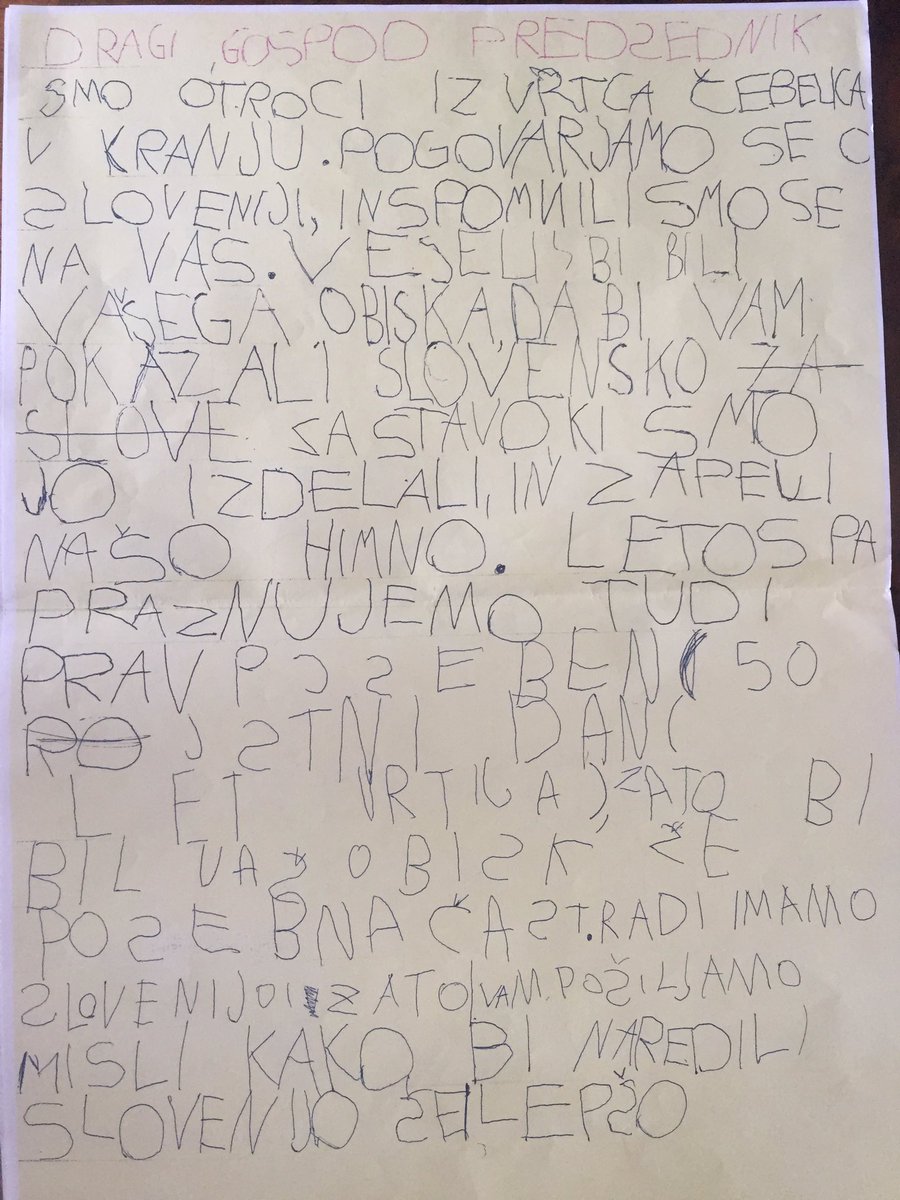 DRAGI GOSPOD PREDSEDNIK
SMO OTROCI IZ VRTCA ČEBELICA
V KRANJU. POGOVARJAMO SE O
SLOVENIJI, IN SPOMNILI SMO SE
NA VAS. VESELI BI BILI
VAŠEGA OBISKA, DA BI VAM
POKAZALI SLOVENSKO ZA
SLOVE ZASTAVO KI SMO
JO IZDELALI, IN ZAPELI
NAŠO HIMNO. LETOS PA
PRAZNUJEMO TUDI
PRAV POSEBEN (50
RO JSTNI DAN (
LET VRTCA), ZATO BI
BIL VAŠ OBISK ŠE
POSEBNA ČAST. RADI IMAMO
SLOVENIJO ZATO VAM POŠILJAMO
MISLI KAKO BI NAREDILI
SLOVENIJO ŠE LEPŠO